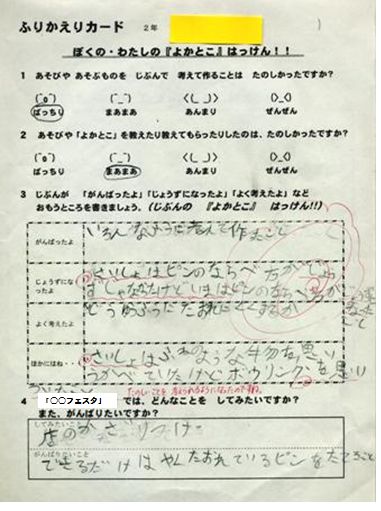 ふりかえりカード　2年
ぼくの・わたしの『よかとこ』はっけん！！
1　あそびや あそぶものを じぶんで 考えて作ることは たのしかったですか？
ばっちり　まあまあ　あんまり　ぜんぜん
2　あそびや「よかとこ」を教えたり教えてもらったりしたのは、たのしかったですか？
ばっちり　まあまあ　あんまり　ぜんぜん
3　じぶんが 「がんばったよ」「じょうずになったよ」「よく考えたよ」など
おもうところを書きましょう。（じぶんの 『よかとこ』 はっけん!!）
がんばったよ
いろんなように考えて作たこと
じょうずになったよ
さいしょはピンのならべ方がじょう
ずじゃなかたけどいまはピンのならべ方が
よく考えたよ
どうゆうふうにたおれ
ほかにはね・・
さいしょは
のような生物を思い
うかべていたけどボウリングを思い
ついたこと
たのしいことを考えられるようになったのですね。
4　「○○フェスタ」　では、どんなことを してみたいですか？
また、がんばりたいですか？
してみたいこと
店のかざりつけ
がんばりたいこと
できるだけはやくたおれているピンをたてること